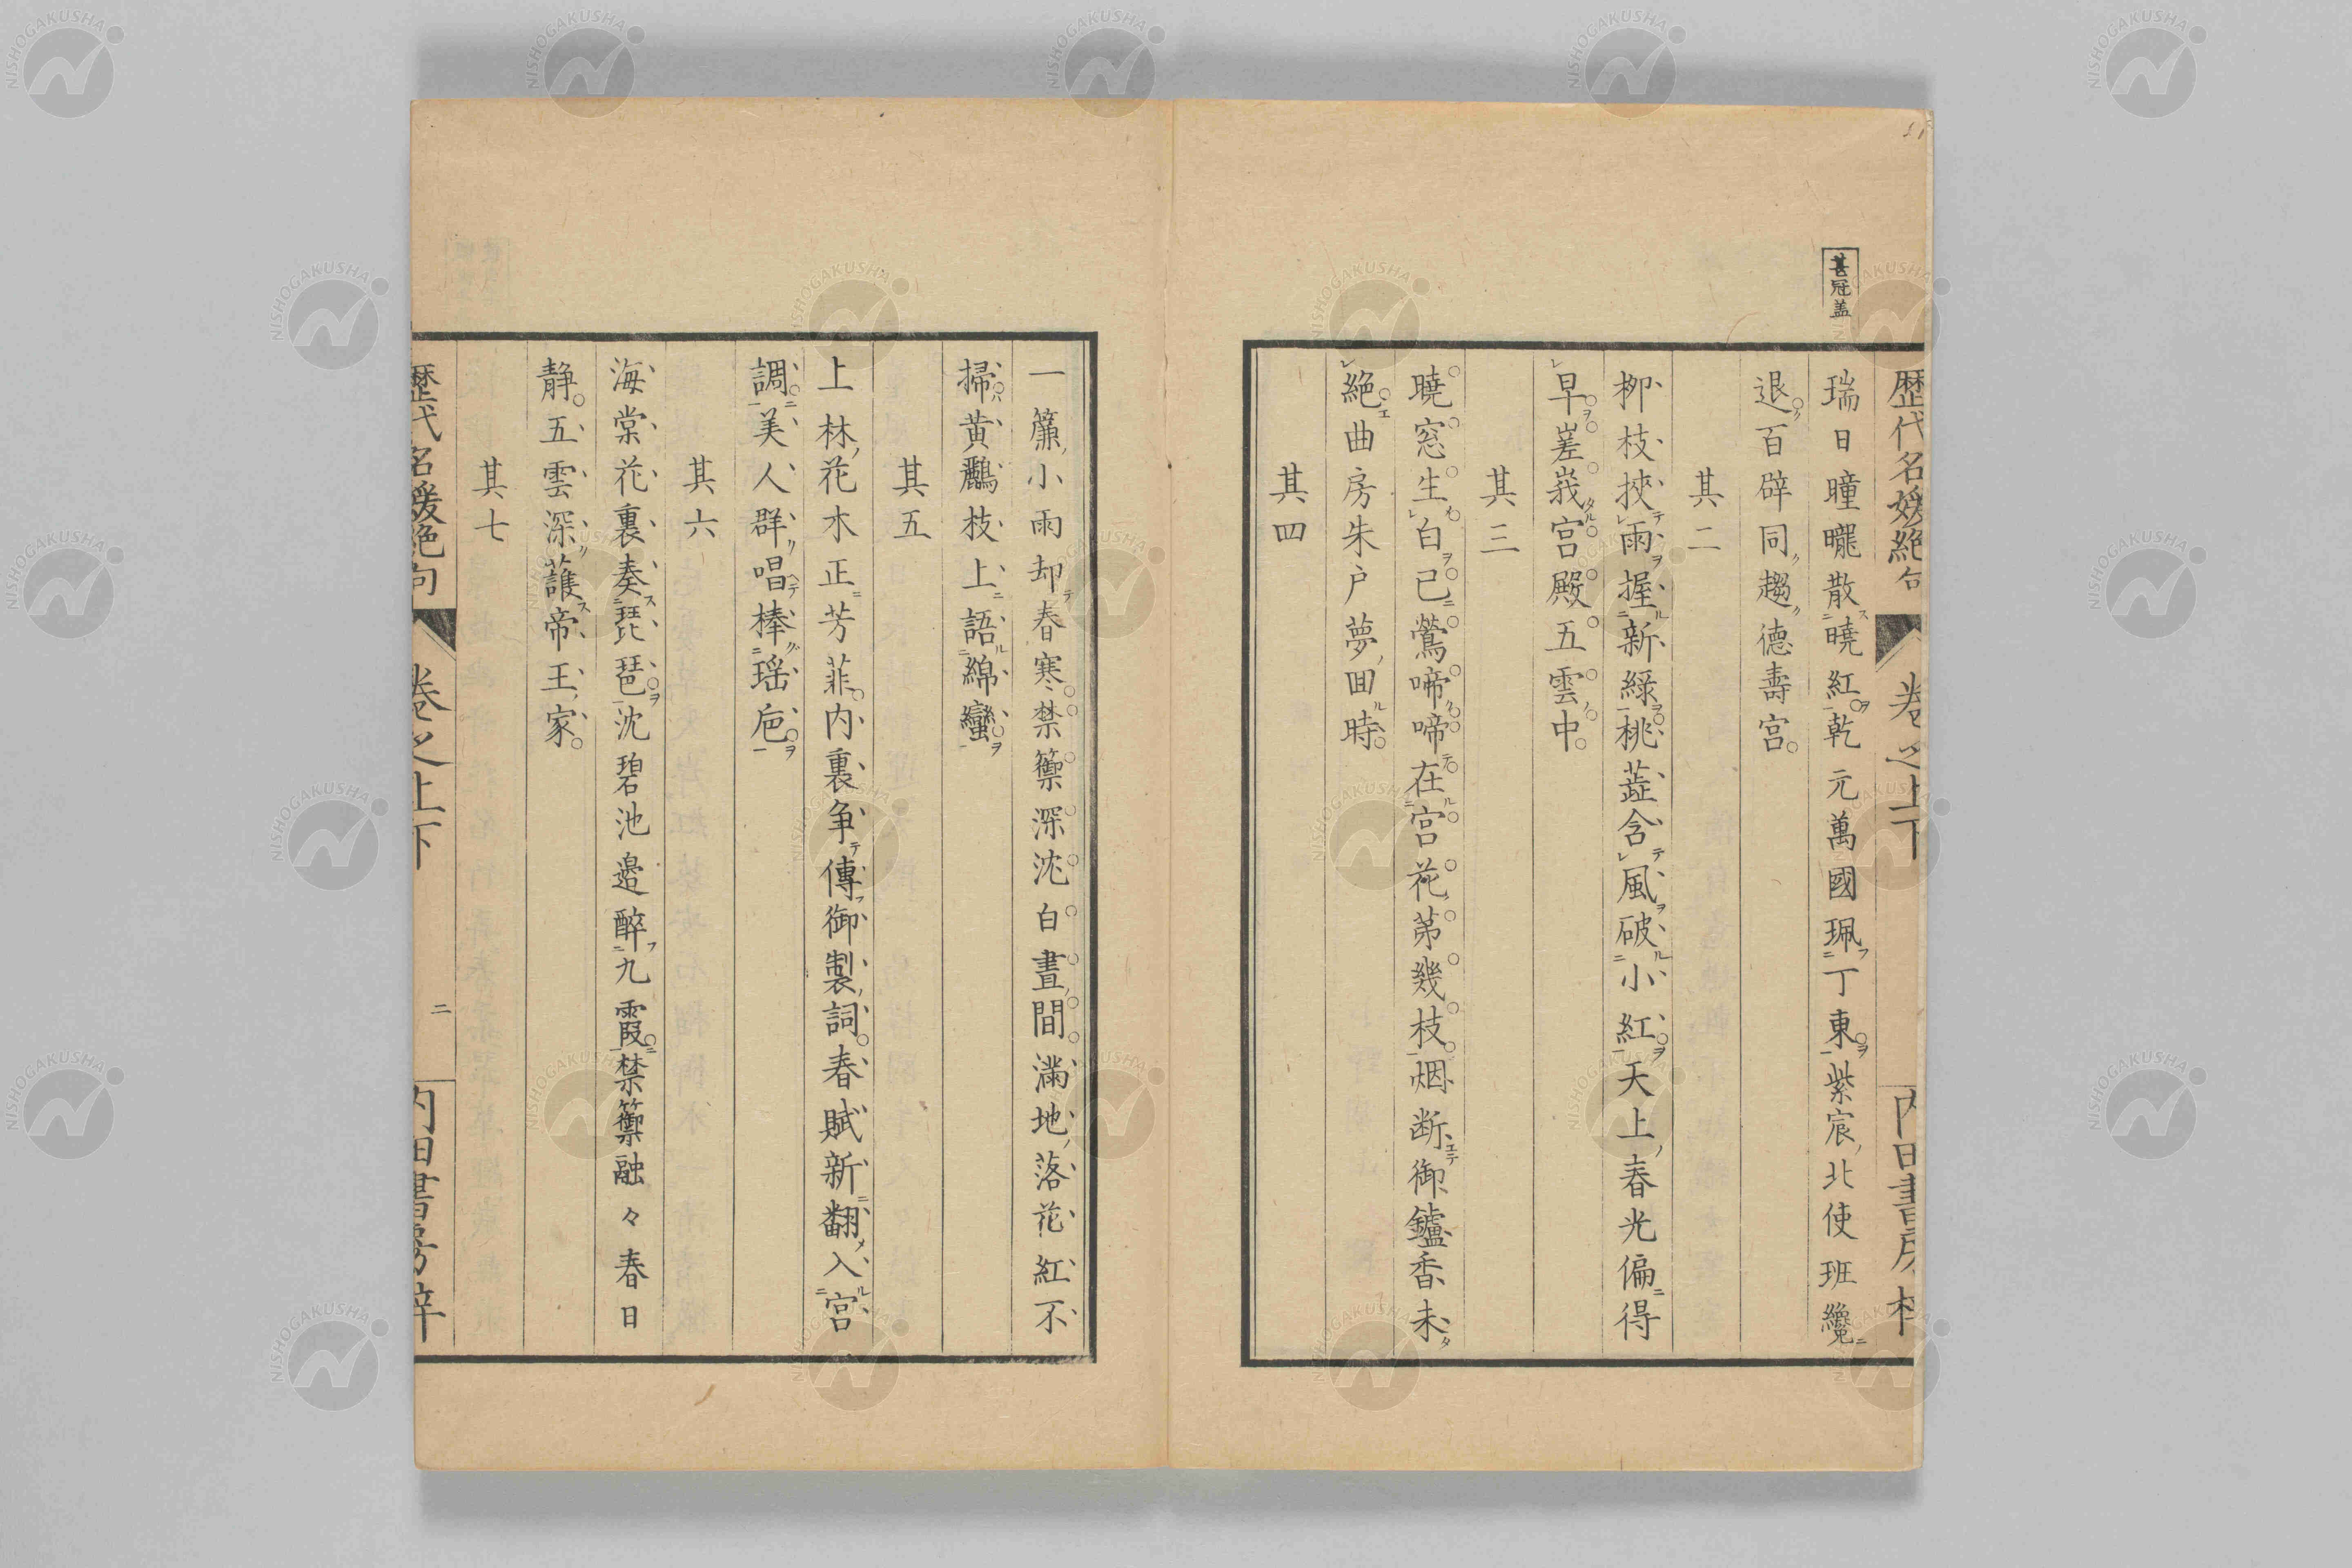 歴代名媛絶句 卷之上下 内田書房梓
甚冠盖
瑞日曈曨散曉紅乾元萬國珮丁東紫宸北使班纔
退百辟同趨德壽宮
其二
柳枝挾雨握新綠桃蕋含風破小紅天上春光偏得
早嵳峩宮殿五雲中
其三
曉窓生白已鶯啼啼在宮花第幾枝烟断御鑪香未
絶曲房朱戸夢回時
其四
一簾小雨却春寒禁籞深沈白晝間滿地落花紅不
掃黄鸝枝上語綿蠻
其五
上林花木正芳菲内裏争傳御製詞春賦新翻入宮
調美人群唱捧瑶巵
其六
海棠花裏奏琵琶沈碧池邉醉九霞禁籞融々春日
静五雲深護帝王家
其七
歴代名媛絶句 卷之上下 二 内田書房梓
NISHOGAKUSHA